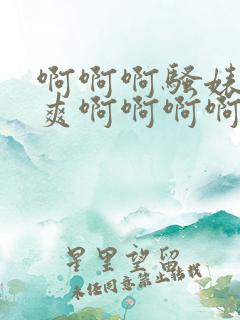 啊啊啊骚婊
爽啊啊啊啊
星里望留
未经同意禁止转载